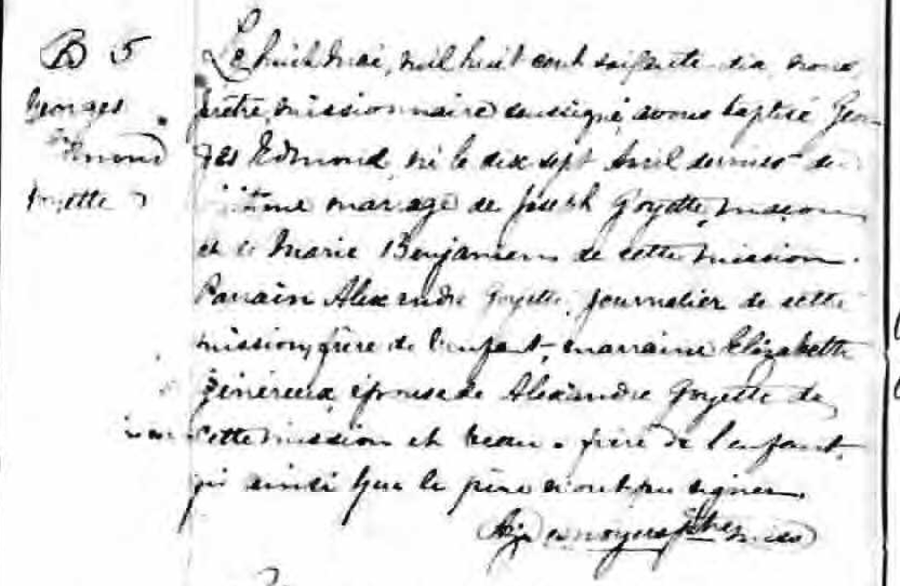 B 5
Georges
Edmond
Goyette
Le huit mai, mil huit cent soixante-dix nous,
prêtre missionnaire soussigné, avons baptisé Geor-
ges Edmond, né le dix sept Avril dernier du
légitime mariage de Joseph Goyette, maçon
et de Marie Benjamin de cette mission.
Parrain Alexandre Goyette, journalier de cette
mission, frère de l'enfant, marraine Elizabette
Généreux, épouse de Alexandre Goyette de
cette mission et beau-frère de l'enfant,
qui ainsi que le père n'ont pu signer.
Ptre miss